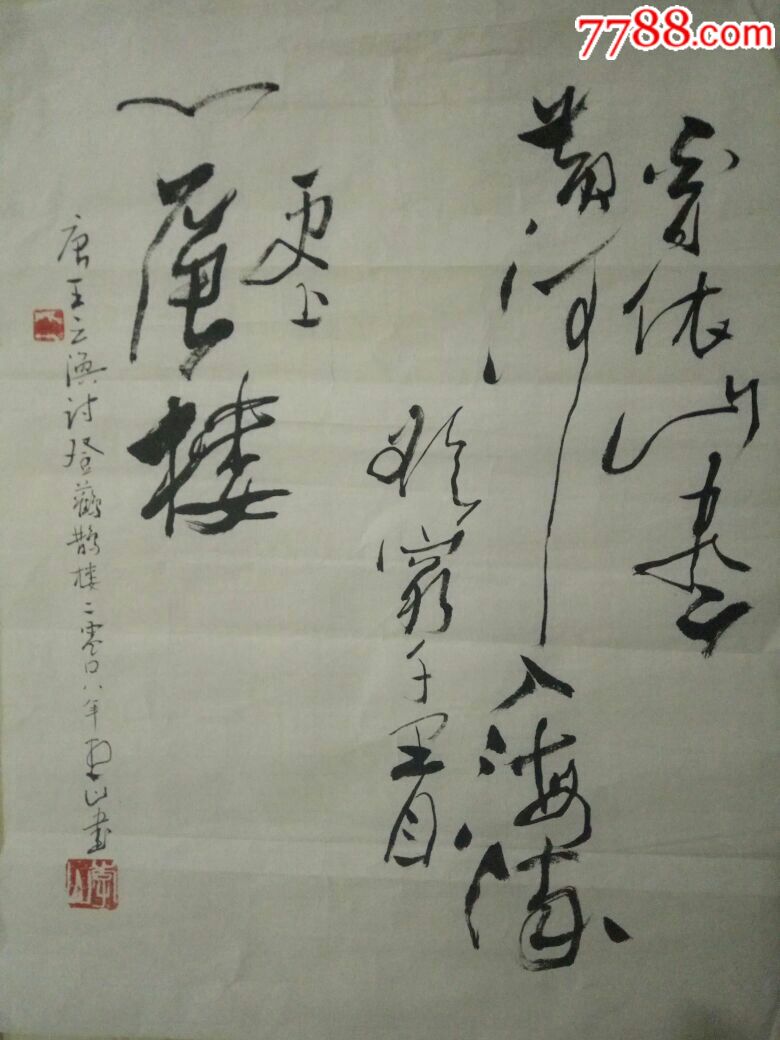 7788.com
白日依山尽
黄河入海流
欲穷千里目
更上
一層楼
唐王之涣诗登鹳鹊楼二零〇八年山書